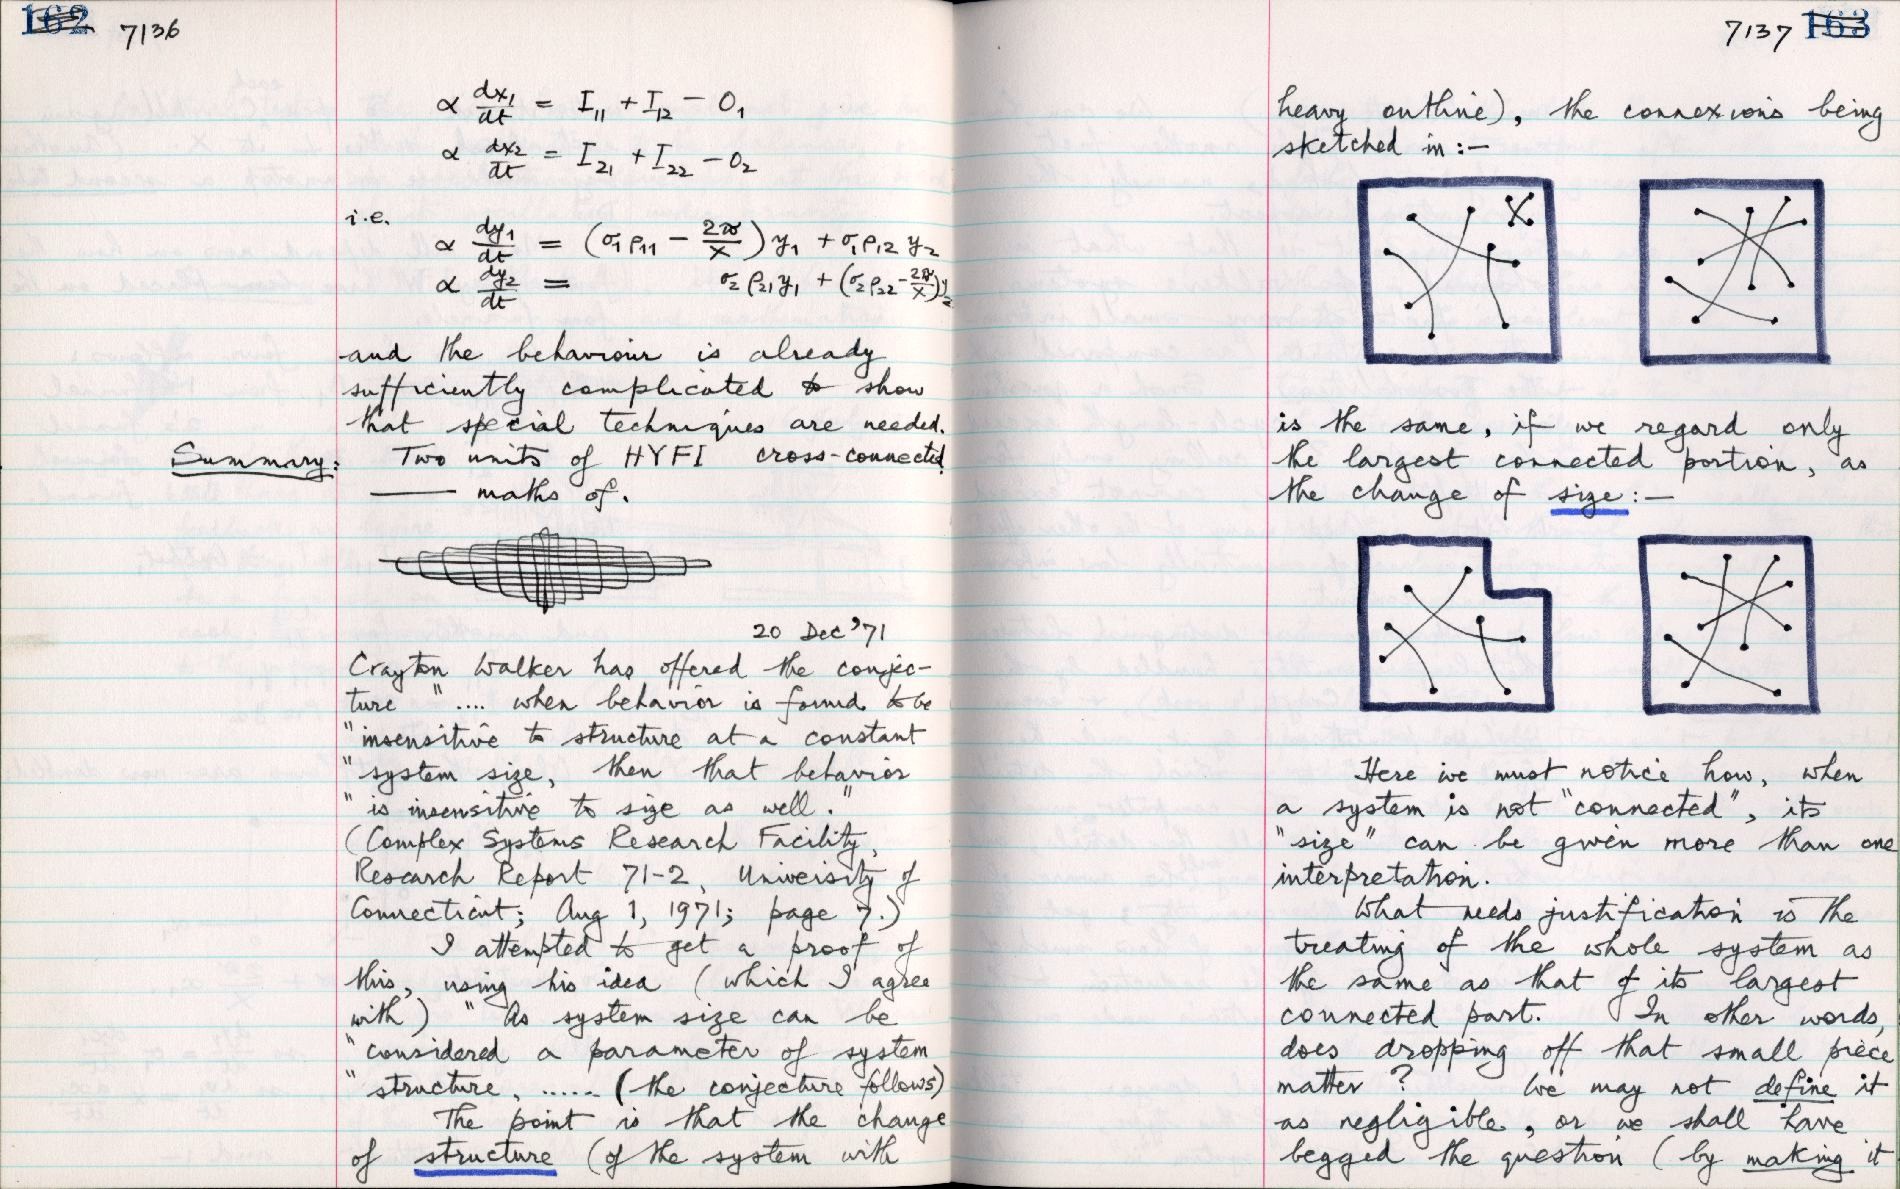 162 7136
∝ dx₁/dt = I₁₁ + I₁₂ − O₁
∝ dx₂/dt = I₂₁ + I₂₂ − O₂
i.e.
∝ dy₁/dt = (σ₁ρ₁₁ − 2π/X) y₁ + σ₁ρ₁₂ y₂
∝ dy₂/dt = σ₂ρ₂₁y₁ + (σ₂ρ₂₂ − 2π/X) y₂
and the behaviour is already
sufficiently complicated to show
that special techniques are needed.
Summary: Two units of HYFI cross-connected,
—— maths of.
20 Dec '71
Crayton Walker has offered the conjec-
ture " .... when behavior is found to be
"insensitive to structure at a constant
"system size, then that behavior
"is insensitive to size as well."
(Complex Systems Research Facility,
Research Report 71-2, University of
Connecticut; Aug 1, 1971; page 7.)
I attempted to get a proof of
this, using his idea (which I agree
with) " As system size can be
"considered a parameter of system
"structure, ...... (the conjecture follows)
The point is that the change
of structure (of the system with
7137 163
heavy outline), the connexions being
sketched in :—
is the same, if we regard only
the largest connected portion, as
the change of size :—
Here we must notice how, when
a system is not "connected", its
"size" can be given more than one
interpretation.
What needs justification is the
treating of the whole system as
the same as that of its largest
connected part. In other words,
does dropping off that small piece
matter ? We may not define it
as negligible, or we shall have
begged the question (by making it